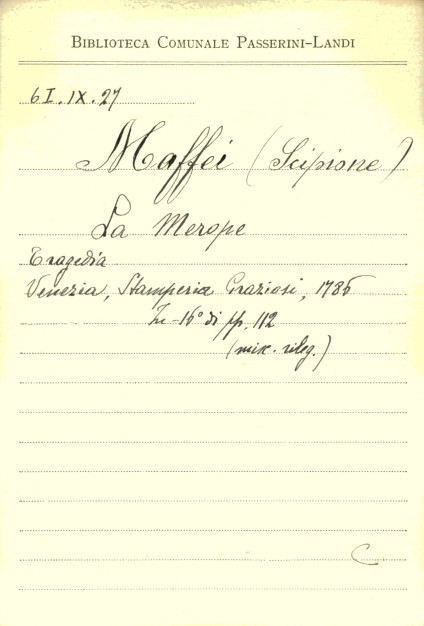 BIBLIOTECA COMUNALE PASSERINI-LANDI
6 I. IX. 27
Maffei (Scipione)
La Merope
Tragedia
Venezia, Stamperia Graziosi, 1786
In-16° di pp. 112
(misc. rileg.)
C